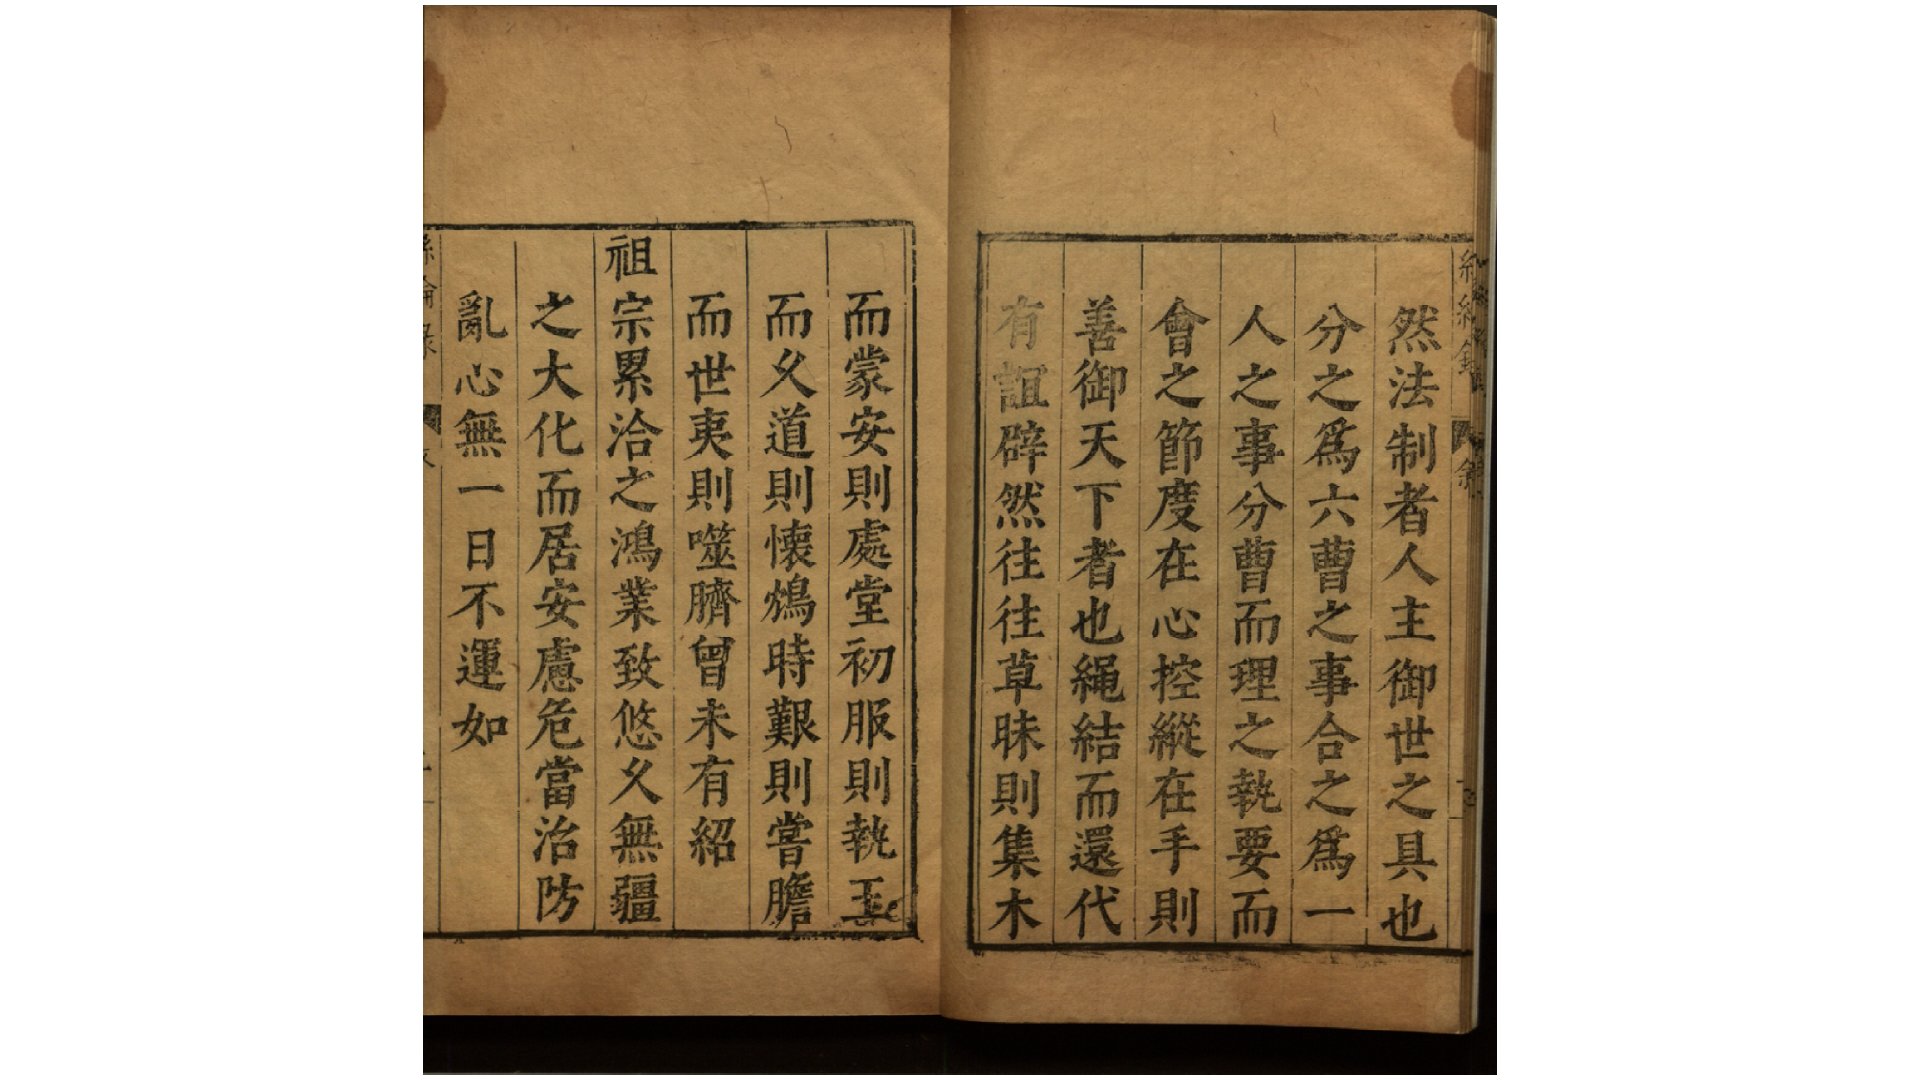 然法制者人主御世之具也
分之爲六曹之事合之爲一
人之事分曹而理之執要而
會之節度在心控縱在手則
善御天下者也繩結而還代
有誼辟然往往草昧則集木
而蒙安則處堂初服則執玉
而久道則懷鴆時艱則嘗膽
而世夷則噬臍曾未有紹
祖宗累洽之鴻業致悠久無疆
之大化而居安慮危當治防
亂心無一日不運如